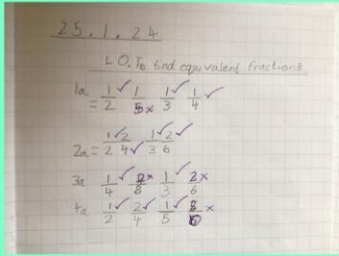 25.1.24
L.O. To find equivalent fractions
1a = 1/2 ✓ 1/5 x 1/3 ✓ 1/4 ✓
2a = 1/2 ✓ 2/4 ✓ 1/3 ✓ 2/6 ✓
3a 1/4 ✓ 2/8 x 1/3 ✓ 2/6 x
4a 1/2 ✓ 2/4 ✓ 1/5 ✓ x